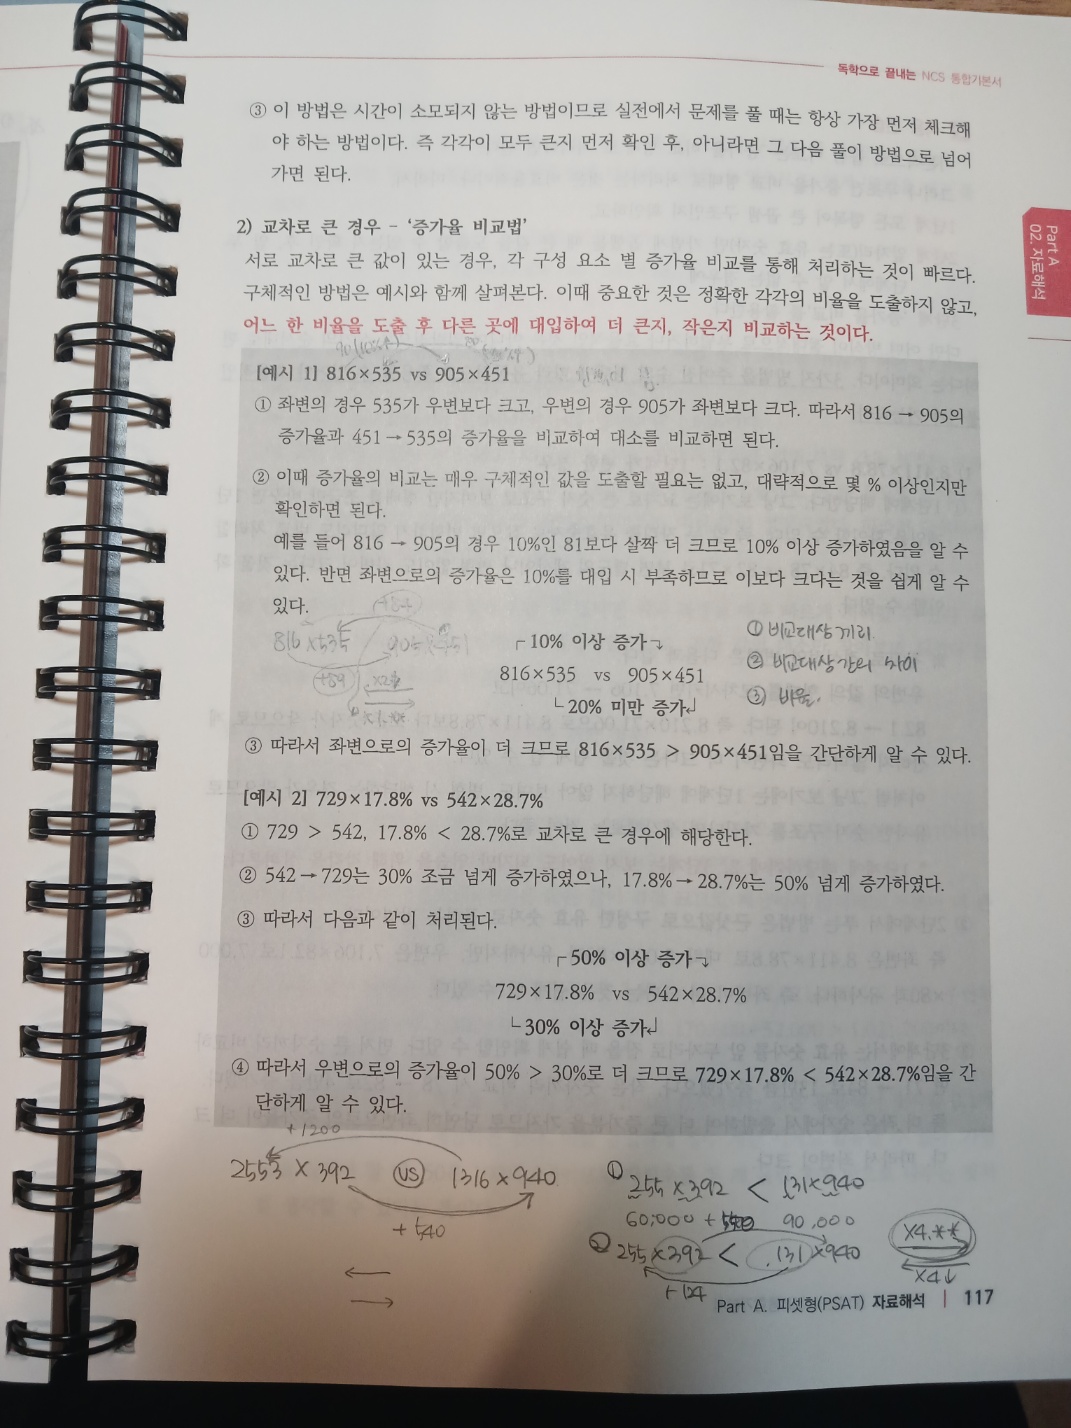 독학으로 끝내는 NCS 통합기본서
③ 이 방법은 시간이 소모되지 않는 방법이므로 실전에서 문제를 풀 때는 항상 가장 먼저 체크해
야 하는 방법이다. 즉 각각이 모두 큰지 먼저 확인 후, 아니라면 그 다음 풀이 방법으로 넘어
가면 된다.
Part A
02. 자료해석
2) 교차로 큰 경우 - ‘증가율 비교법’
서로 교차로 큰 값이 있는 경우, 각 구성 요소 별 증가율 비교를 통해 처리하는 것이 빠르다.
구체적인 방법은 예시와 함께 살펴본다. 이때 중요한 것은 정확한 각각의 비율을 도출하지 않고,
어느 한 비율을 도출 후 다른 곳에 대입하여 더 큰지, 작은지 비교하는 것이다.
[예시 1] 816×535 vs 905×451
① 좌변의 경우 535가 우변보다 크고, 우변의 경우 905가 좌변보다 크다. 따라서 816 → 905의
증가율과 451 → 535의 증가율을 비교하여 대소를 비교하면 된다.
② 이때 증가율의 비교는 매우 구체적인 값을 도출할 필요는 없고, 대략적으로 몇 % 이상인지만
확인하면 된다.
예를 들어 816 → 905의 경우 10%인 81보다 살짝 더 크므로 10% 이상 증가하였음을 알 수
있다. 반면 좌변으로의 증가율은 10%를 대입 시 부족하므로 이보다 크다는 것을 쉽게 알 수
있다.
+84
816×535 905×451
+89
①비교대상끼리
② 비교대상간의 차이
③ 비율.
10% 이상 증가
816×535 vs 905×451
20% 미만 증가
③ 따라서 좌변으로의 증가율이 더 크므로 816×535 > 905×451임을 간단하게 알 수 있다.
[예시 2] 729×17.8% vs 542×28.7%
① 729 > 542, 17.8% < 28.7%로 교차로 큰 경우에 해당한다.
② 542→729는 30% 조금 넘게 증가하였으나, 17.8%→28.7%는 50% 넘게 증가하였다.
③ 따라서 다음과 같이 처리된다.
50% 이상 증가
729×17.8% vs 542×28.7%
30% 이상 증가
④ 따라서 우변으로의 증가율이 50% > 30%로 더 크므로 729×17.8% < 542×28.7%임을 간
단하게 알 수 있다.
+1200
2553 × 392 VS 1316×940
+540
① 255 ×392 < 131×940
60,000 90,000
② 255×392 < 131×940
+124
×4.**
×4↓
Part A. 피셋형(PSAT) 자료해석 | 117